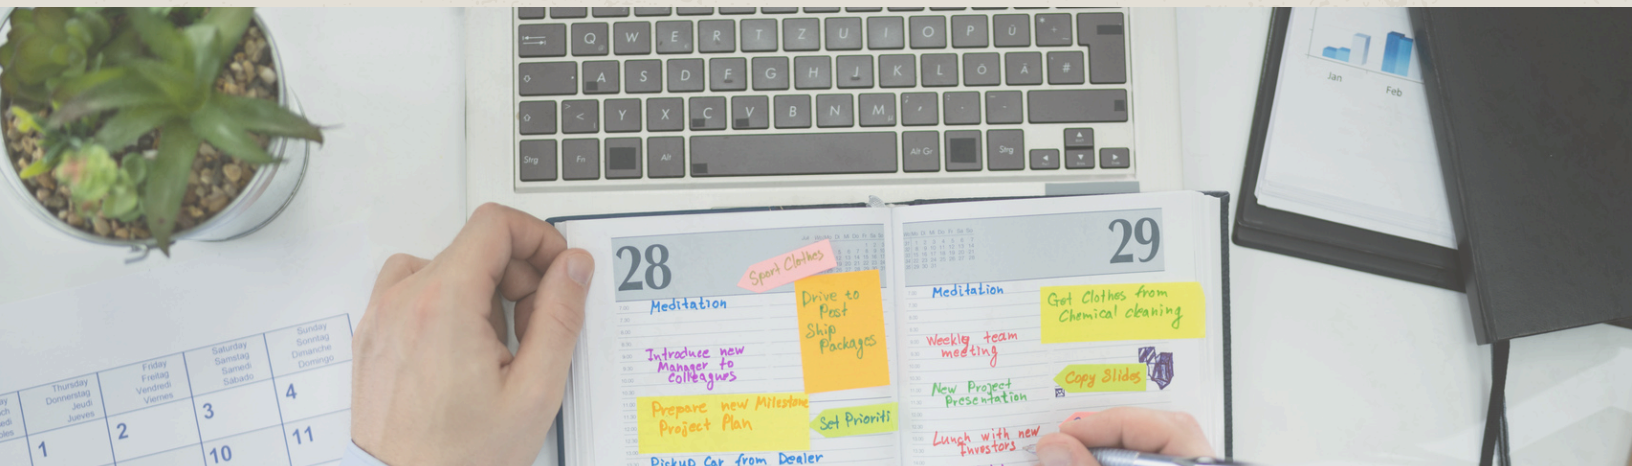 Q W E R T Z U I O P Ü
A S D F G H J K L Ö Ä #
< Y X C V B N M
Strg Fn Alt Alt Gr Strg
Jan
Feb
28
Sport Clothes
Meditation
Drive to
Post
Ship
Packages
Introduce new
Manager to
Colleagues
Prepare new Milestone
Project Plan
Set Prioriti
Pickup Car from Dealer
29
Meditation
Get Clothes from
Chemical cleaning
Weekly team
meeting
Copy Slides
New Project
Presentation
Lunch with new
Investors
Thursday
Donnerstag
Jeudi
Jueves
Friday
Freitag
Vendredi
Viernes
Saturday
Samstag
Samedi
Sábado
Sunday
Sonntag
Dimanche
Domingo
1 2 3 4
10 11